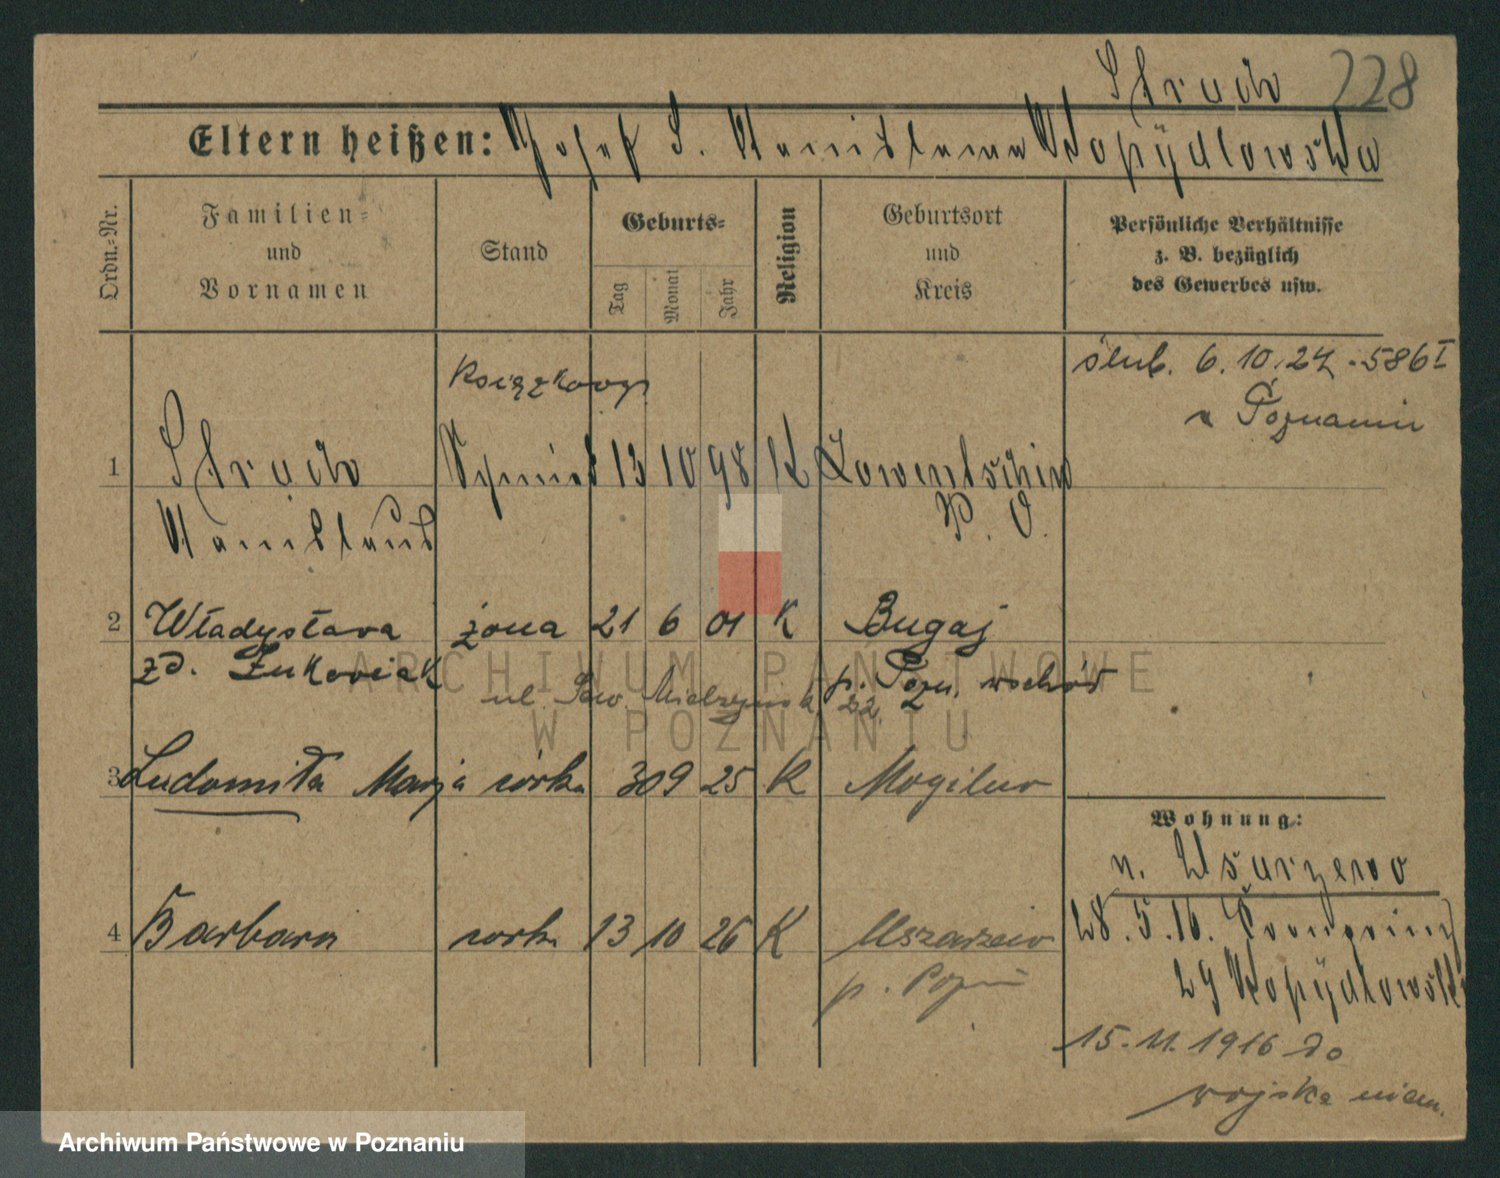 Struck 228
Eltern heißen: Josef S. Stanislawa Kopydlowska
Ordn.-Nr.
Familien- und Vornamen
Stand
Geburts-
Tag
Monat
Jahr
Religion
Geburtsort und Kreis
Persönliche Verhältnisse
z. B. bezüglich
des Gewerbes usw.
ślub. 6.10.24 - 586 I
w Poznaniu
Książkowy
1 13 10 98 K Lowentschin
Stanislaus P. O.
2 Władysława żona 21 6 01 K Bugaj
zd. Łukowiak p. Pozn. wschód
ul. Mielżyńsk. 22
ARCHIWUM PAŃSTWOWE
W POZNANIU
3 Ludomiła Marja córka 30 9 25 K Mogilno
Wohnung:
4 Barbara córka 13 10 26 K Uszarzewo
p. Pozn
28.5.16.
29 Kopydlowski
15.11.1916 do
wojska niem.
Archiwum Państwowe w Poznaniu